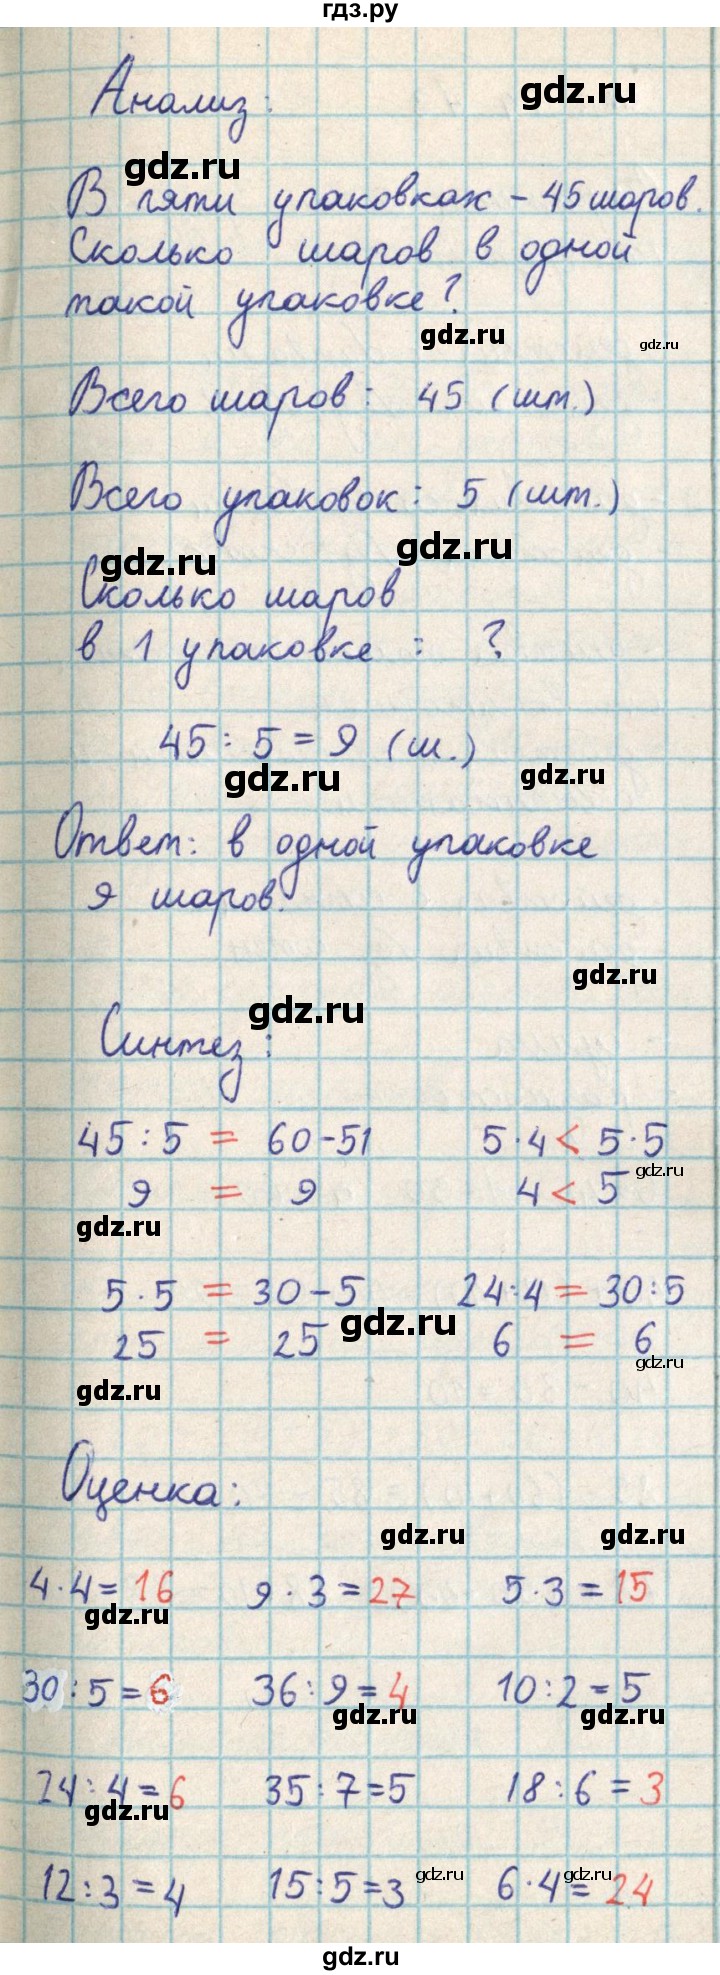 гдз.ру
Анализ:
gdz.ru
gdz.ru
В пяти упаковках - 45 шаров.
Сколько шаров в одной
такой упаковке?
gdz.ru
gdz.ru
Всего шаров: 45 (шт.)
Всего упаковок: 5 (шт.)
gdz.ru
gdz.ru
Сколько шаров
в 1 упаковке: ?
45 : 5 = 9 (ш.)
gdz.ru
gdz.ru
Ответ: в одной упаковке
9 шаров.
gdz.ru
gdz.ru
Синтез:
45 : 5 = 60 - 51 5 · 4 < 5 · 5
gdz.ru
9 = 9 4 < 5
gdz.ru
5 · 5 = 30 - 5 24 : 4 = 30 : 5
gdz.ru
25 = 25 6 = 6
gdz.ru
gdz.ru
Оценка:
gdz.ru gdz.ru
4 · 4 = 16 9 · 3 = 27 5 · 3 = 15
gdz.ru
30 : 5 = 6 36 : 9 = 4 10 : 2 = 5
gdz.ru gdz.ru
24 : 4 = 6 35 : 7 = 5 18 : 6 = 3
gdz.ru
12 : 3 = 4 15 : 5 = 3 6 · 4 = 24
gdz.ru gdz.ru
gdz.ru